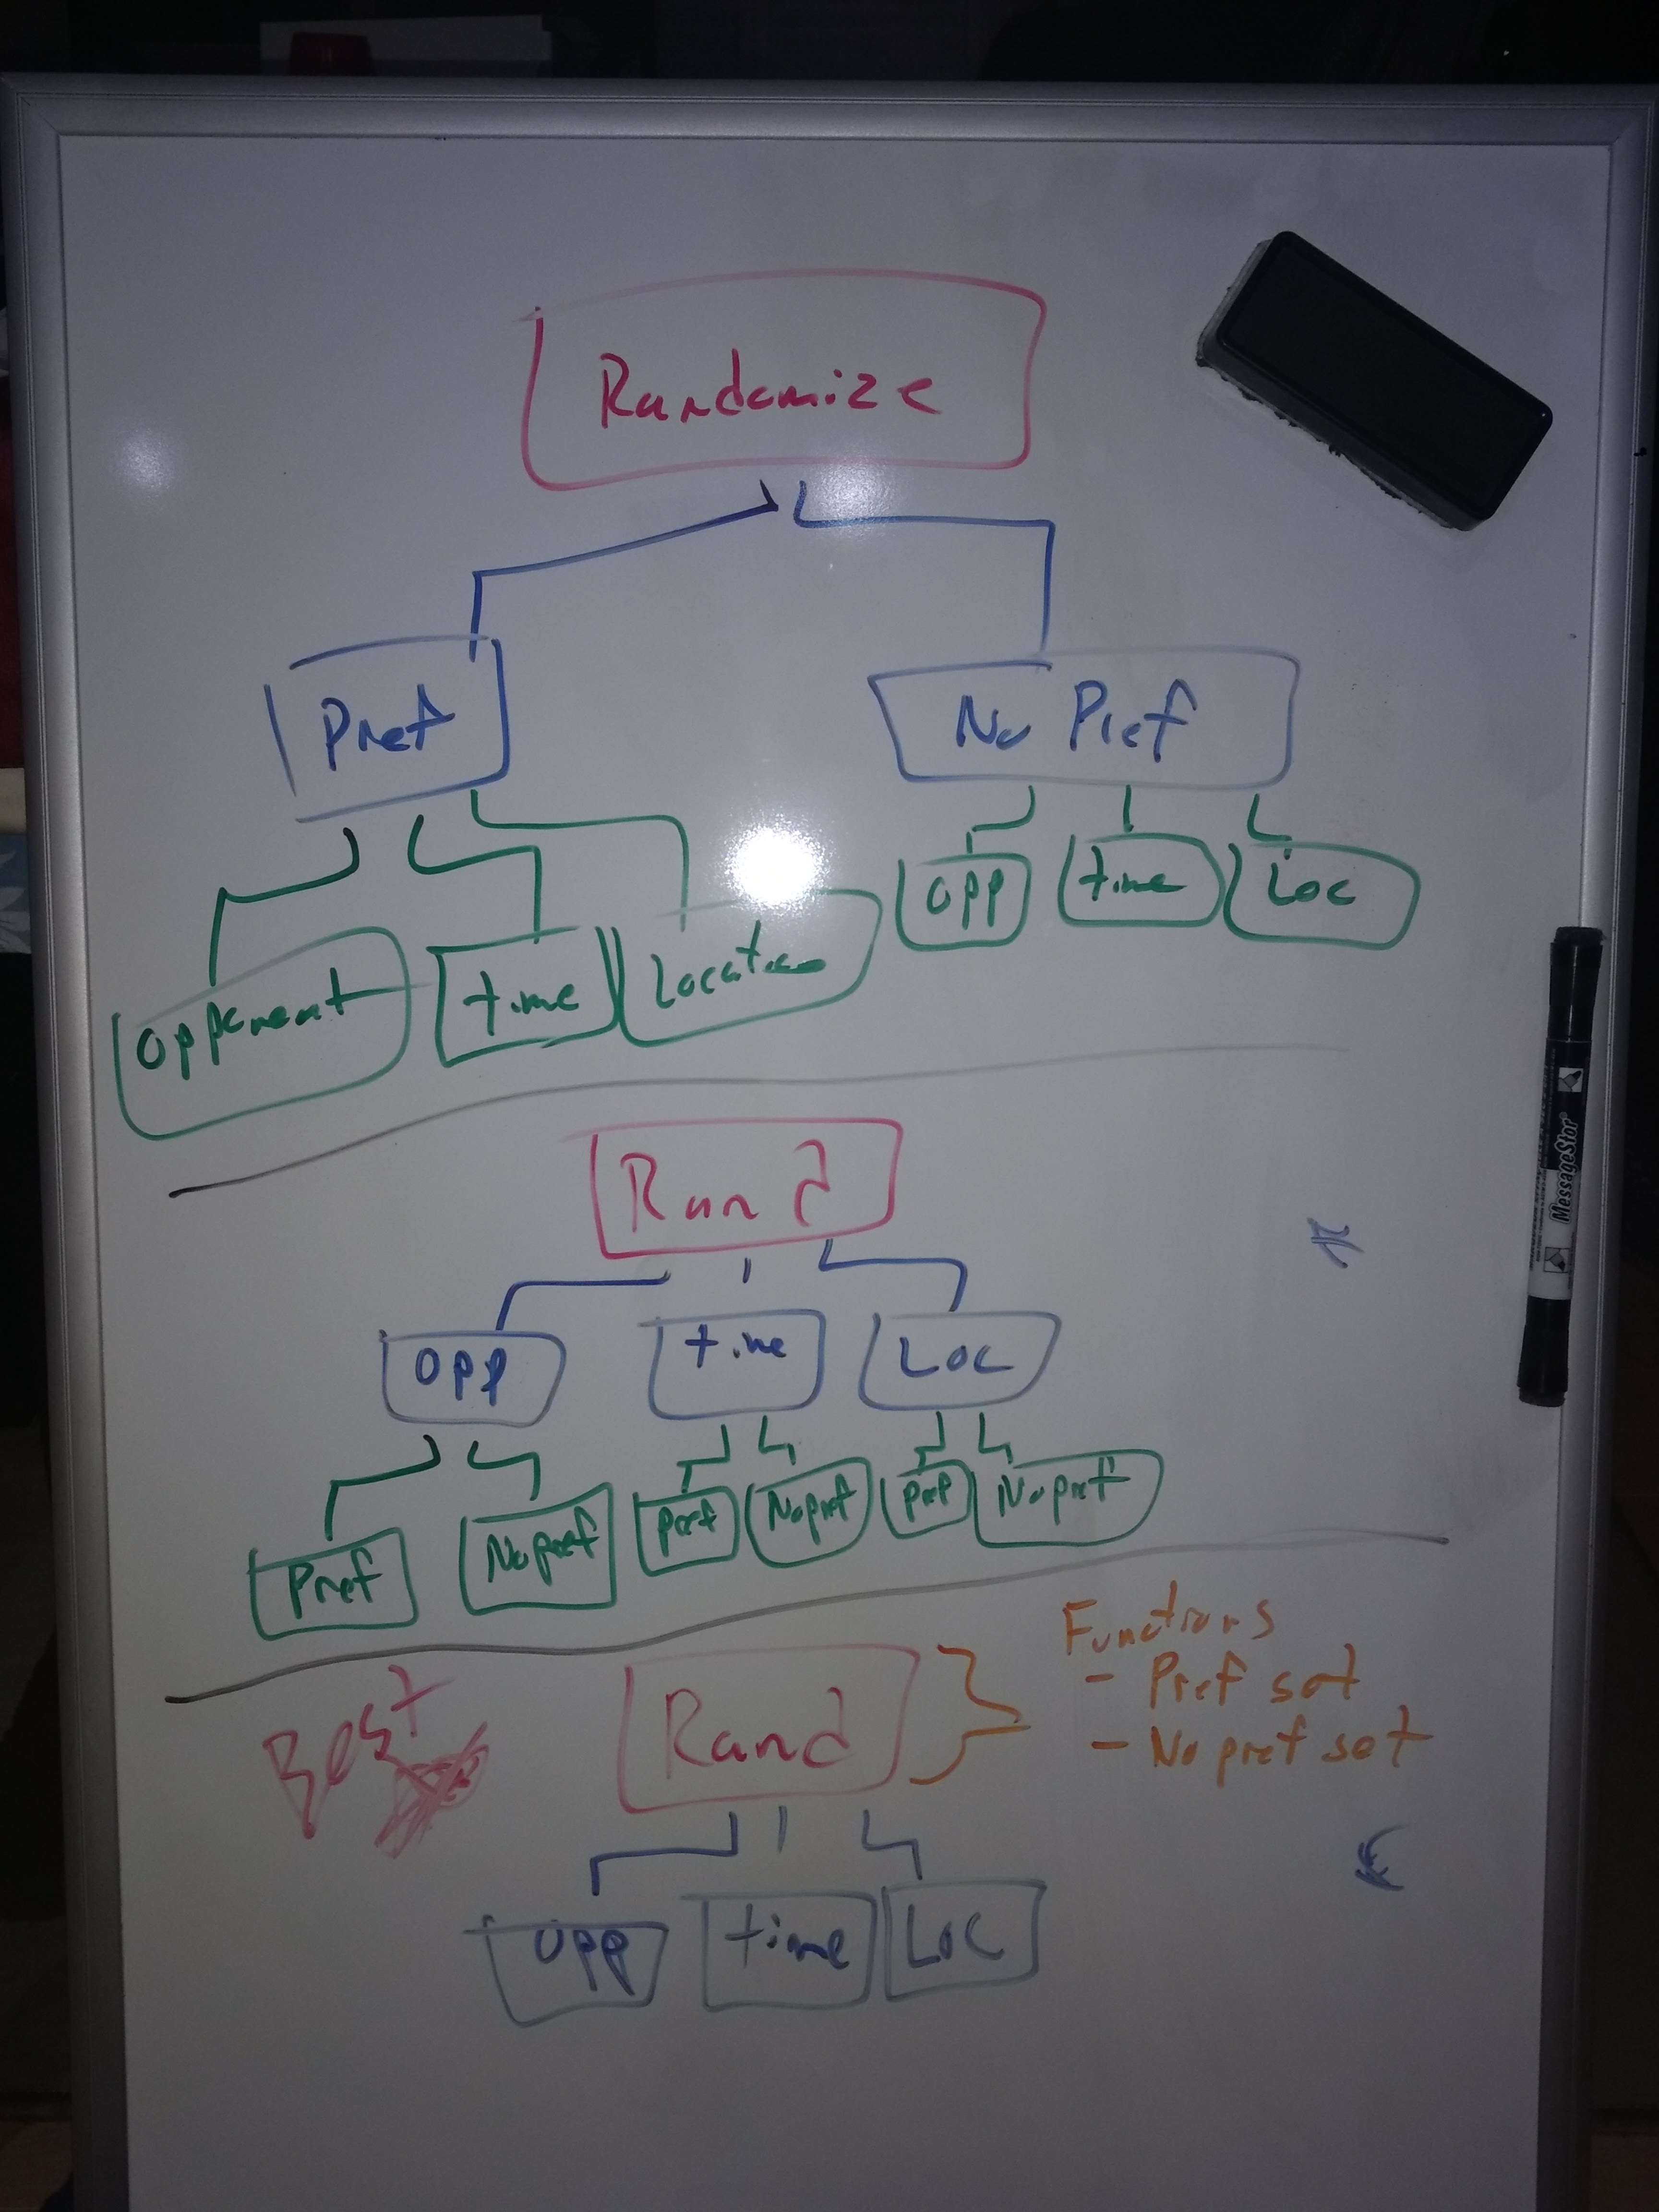 Randomize
Pref
No Pref
Opponent
time
Location
Opp
time
Loc
Rand
Opp
time
Loc
Pref
No pref
Pref
No pref
Pref
No pref
Best
Rand
Functions
- Pref set
- No pref set
Opp
time
Loc
MessageStor®